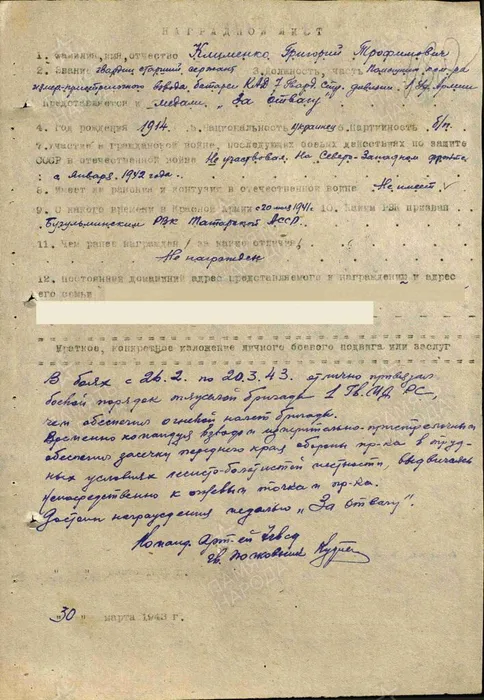 НАГРАДНОЙ ЛИСТ
1. Фамилия, имя, отчество Клименко Григорий Трофимович
2. Звание гвардии старший сержант 3. Должность, часть Помощник ком-ра
взвода батареи 7 Гвард. Стр. дивизии 1 Уд. Армии
Представляется к медали „За отвагу"
4. Год рождения 1914. 5. Национальность украинец 6. Партийность б/п.
7. Участие в гражданской войне, последующих боевых действиях по защите
СССР и отечественной войне Не участвовал. На Северо-Западном фронте
с января 1942 года.
8. Имеет ли ранения и контузии в отечественной войне Не имеет
9. С какого времени в Красной Армии с 20 июля 1941 г. 10. Каким РВК призван
Бугульминским РВК Татарской АССР.
11. Чем ранее награжден / за какие отличия /
Не награжден
12. Постоянный домашний адрес представляемого к награждению и адрес
его семьи
Краткое, конкретное изложение личного боевого подвига или заслуг
В боях с 26.2. по 20.3.43. отлично привязал
боевой порядок тяжелой бригады 1 Гв. МД РС,
чем обеспечил огневой налет бригады.
Временно командуя взводом измерительно-пристрелочным
обеспечил засечку переднего края обороны пр-ка в труд-
ных условиях лесисто-болотистой местности, выдвигаясь
непосредственно к огневым точкам пр-ка.
Достоин награждения медалью „За отвагу".
Команд. Арт-ей 7 гвсд
гв. полковник
"30" марта 1943 г.